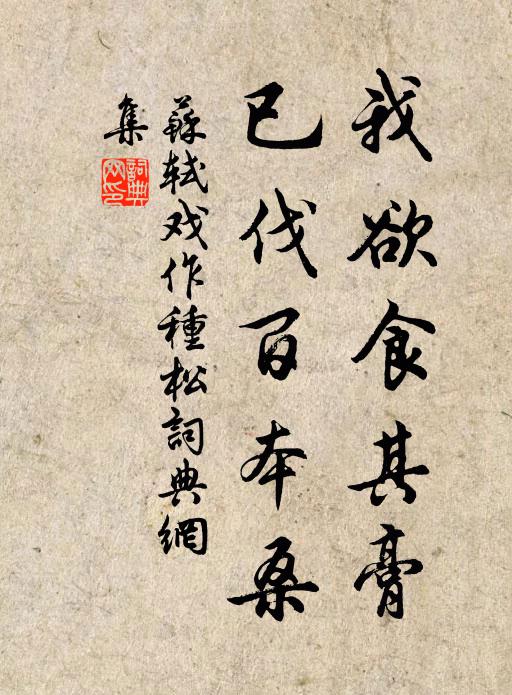 我欲食其膏
已伐百本桑
蘇轼戏作種松詞典網
集
詞典網印